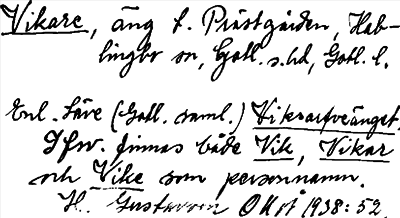 Vikare, äng t. Prästgården, Hab-
lingbo sn, Gotl. s. hd, Gotl. l.
Enl. Säve (Gotl. saml.) Vikvarfveänget.
I fsv. finnas både Vik, Vikar
och Vike som personnamn.
H. Gustavson OKot 1938:52.